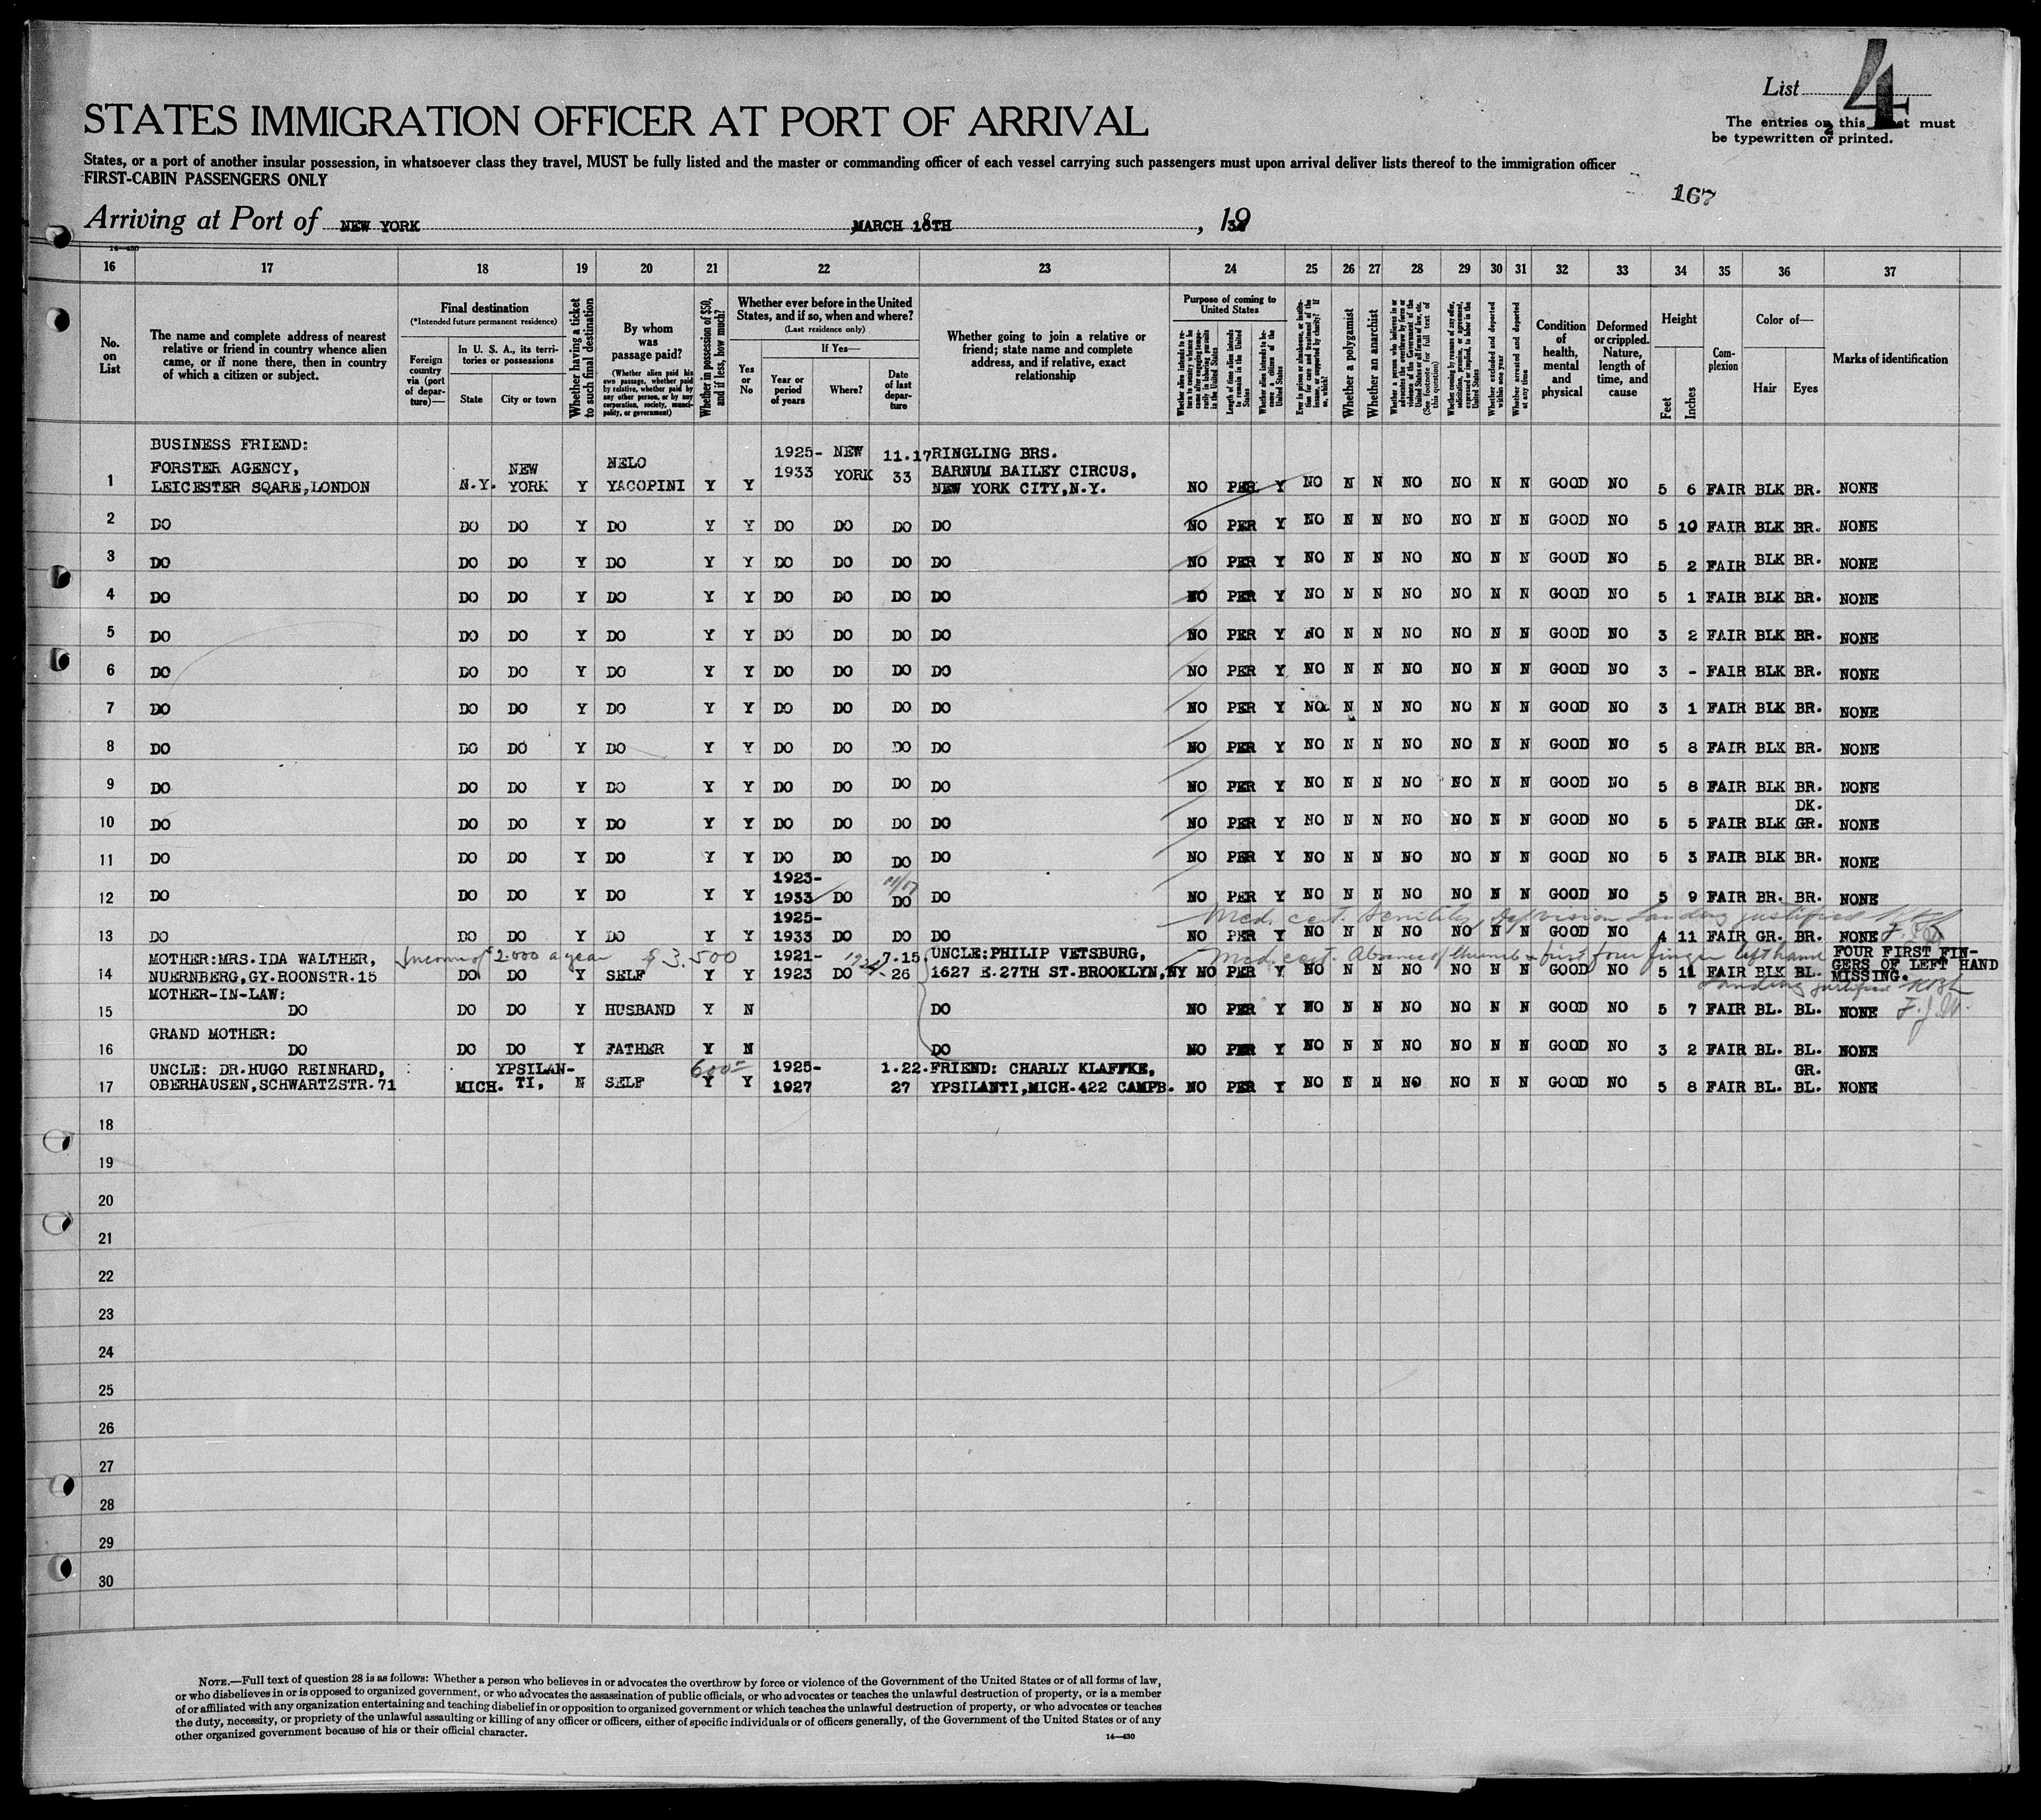 List 4
STATES IMMIGRATION OFFICER AT PORT OF ARRIVAL
The entries on this must
be typewritten or printed.
2
States, or a port of another insular possession, in whatsoever class they travel, MUST be fully listed and the master or commanding officer of each vessel carrying such passengers must upon arrival deliver lists thereof to the immigration officer
FIRST-CABIN PASSENGERS ONLY
167
Arriving at Port of NEW YORK MARCH 18TH , 19
14—430
16 17 18 19 20 21 22 23 24 25 26 27 28 29 30 31 32 33 34 35 36 37
No. on List
The name and complete address of nearest relative or friend in country whence alien came, or if none there, then in country of which a citizen or subject.
Final destination
(*Intended future permanent residence)
Foreign country via (port of departure)—
In U. S. A., its territories or possessions
State City or town
Whether having a ticket to such final destination
By whom was passage paid?
(Whether alien paid his own passage, whether paid by relative, whether paid by any other person, or by any corporation, society, municipality, or government)
Whether in possession of $50, and if less, how much?
Whether ever before in the United States, and if so, when and where?
(Last residence only)
Yes or No
If Yes—
Year or period of years Where? Date of last departure
Whether going to join a relative or friend; state name and complete address, and if relative, exact relationship
Purpose of coming to United States
Length of time alien intends to remain in the United States
Whether alien intends to become a citizen of the United States
Whether a polygamist
Whether an anarchist
Whether excluded and deported within one year
Whether arrested and deported at any time
Condition of health, mental and physical
Deformed or crippled. Nature, length of time, and cause
Height
Feet Inches
Complexion
Color of—
Hair Eyes
Marks of identification
BUSINESS FRIEND:
FORSTER AGENCY, NEW NELO 1925- NEW 11.17 RINGLING BRS.
1933 YORK 33 BARNUM BAILEY CIRCUS,
1 LEICESTER SQARE,LONDON N.Y. YORK Y YACOPINI Y Y NEW YORK CITY,N.Y. NO PER Y NO N N NO NO N N GOOD NO 5 6 FAIR BLK BR. NONE
2 DO DO DO Y DO Y Y DO DO DO DO NO PER Y NO N N NO NO N N GOOD NO 5 10 FAIR BLK BR. NONE
3 DO DO DO Y DO Y Y DO DO DO DO NO PER Y NO N N NO NO N N GOOD NO 5 2 FAIR BLK BR. NONE
4 DO DO DO Y DO Y Y DO DO DO DO NO PER Y NO N N NO NO N N GOOD NO 5 1 FAIR BLK BR. NONE
5 DO DO DO Y DO Y Y DO DO DO DO NO PER Y NO N N NO NO N N GOOD NO 3 2 FAIR BLK BR. NONE
6 DO DO DO Y DO Y Y DO DO DO DO NO PER Y NO N N NO NO N N GOOD NO 3 - FAIR BLK BR. NONE
7 DO DO DO Y DO Y Y DO DO DO DO NO PER Y NO N N NO NO N N GOOD NO 3 1 FAIR BLK BR. NONE
8 DO DO DO Y DO Y Y DO DO DO DO NO PER Y NO N N NO NO N N GOOD NO 5 8 FAIR BLK BR. NONE
9 DO DO DO Y DO Y Y DO DO DO DO NO PER Y NO N N NO NO N N GOOD NO 5 8 FAIR BLK BR. NONE
DK.
10 DO DO DO Y DO Y Y DO DO DO DO NO PER Y NO N N NO NO N N GOOD NO 5 5 FAIR BLK GR. NONE
11 DO DO DO Y DO Y Y DO DO DO DO NO PER Y NO N N NO NO N N GOOD NO 5 3 FAIR BLK BR. NONE
1923- 11/17
12 DO DO DO Y DO Y Y 1933 DO DO DO NO PER Y NO N N NO NO N N GOOD NO 5 9 FAIR BR. BR. NONE
1925- Med. cert. Senility, Landing justified
13 DO DO DO Y DO Y Y 1933 DO DO DO NO PER Y NO N N NO NO N N GOOD NO 4 11 FAIR GR. BR. NONE
MOTHER:MRS.IDA WALTHER, Income of 2000 a year $3.500 1921- 7.15. UNCLE:PHILIP VETSBURG, Med. cert. Absence of thumb & first four finger left hand FOUR FIRST FIN-
14 NUERNBERG,GY.ROONSTR.15 DO DO Y SELF Y Y 1923 DO 26 1627 E.27TH ST.BROOKLYN,NY NO PER Y NO N N NO NO N N GOOD NO 5 11 FAIR BLK BL. GERS OF LEFT HAND
MISSING.
MOTHER-IN-LAW: Landing justified
15 DO DO DO Y HUSBAND Y N DO NO PER Y NO N N NO NO N N GOOD NO 5 7 FAIR BL. BL. NONE
GRAND MOTHER:
16 DO DO DO Y FATHER Y N DO NO PER Y NO N N NO NO N N GOOD NO 3 2 FAIR BL. BL. NONE
UNCLE: DR.HUGO REINHARD, YPSILAN- 600 1925- 1.22. FRIEND: CHARLY KLAFFKE, GR.
17 OBERHAUSEN,SCHWARTZSTR.71 MICH. TI, N SELF Y Y 1927 27 YPSILANTI,MICH.422 CAMPB. NO PER Y NO N N NO NO N N GOOD NO 5 8 FAIR BL. BL. NONE
18
19
20
21
22
23
24
25
26
27
28
29
30
NOTE.—Full text of question 28 is as follows: Whether a person who believes in or advocates the overthrow by force or violence of the Government of the United States or of all forms of law,
or who disbelieves in or is opposed to organized government, or who advocates the assassination of public officials, or who advocates or teaches the unlawful destruction of property, or is a member
of or affiliated with any organization entertaining and teaching disbelief in or opposition to organized government or which teaches the unlawful destruction of property, or who advocates or teaches
the duty, necessity, or propriety of the unlawful assaulting or killing of any officer or officers, either of specific individuals or of officers generally, of the Government of the United States or of any
other organized government because of his or their official character.
14—430